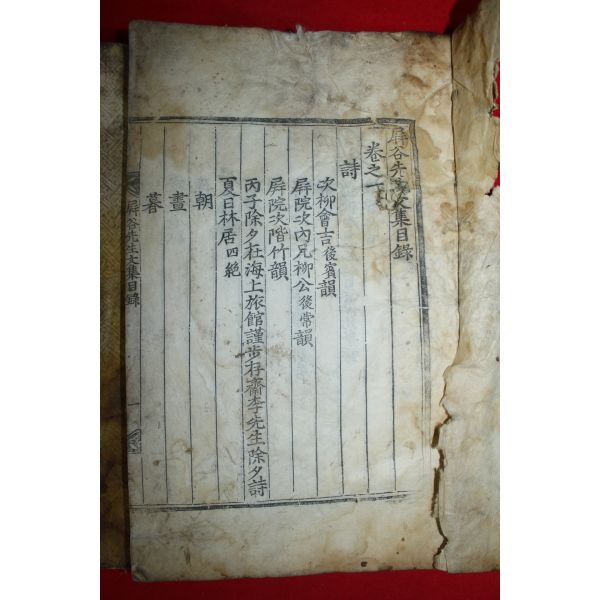 屛谷先生文集目錄
卷之一
詩
次柳會吉後賓韻
屛院次內兄柳公後常韻
屛院次階竹韻
丙子除夕在海上旅館謹步存齋李先生除夕詩
夏日林居四絶
朝
晝
暮
屛谷先生文集目錄
一